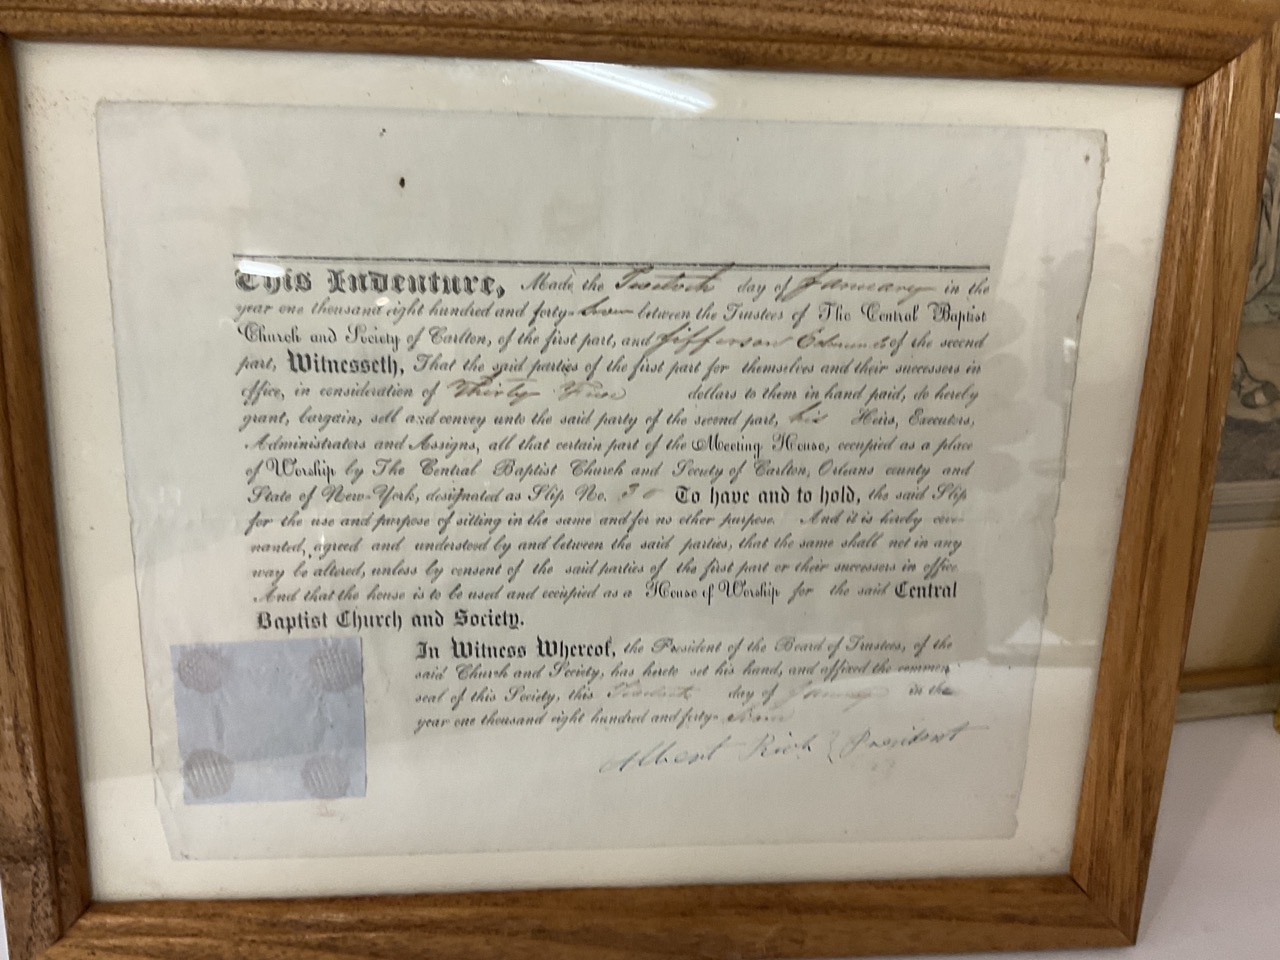 This Indenture, Made, the Twelveth day of January in the
year one thousand eight hundred and forty-Seven between the Trustees of The Central Baptist
Church and Society of Carlton, of the first part, and Jefferson of the second
part, Witnesseth, That the said parties of the first part for themselves and their successors in
office, in consideration of Thirty Five dollars to them in hand paid, do hereby
grant, bargain, sell and convey unto the said party of the second part, his Heirs, Executors,
Administrators and Assigns, all that certain part of the Meeting House, occupied as a place
of Worship by The Central Baptist Church and Society of Carlton, Orleans county and
State of New-York, designated as Slip No. 30 To have and to hold, the said Slip
for the use and purpose of sitting in the same and for no other purpose. And it is hereby cov-
nanted, agreed and understood by and between the said parties, that the same shall not in any
way be altered, unless by consent of the said parties of the first part or their successors in office
And that the house is to be used and occupied as a House of Worship for the said Central
Baptist Church and Society.
In Witness Whereof, the President of the Board of Trustees, of the
said Church and Society, has hereto set his hand, and affixed the common
seal of this Society, this day of January in the
year one thousand eight hundred and forty-Seven
Albert Rich President